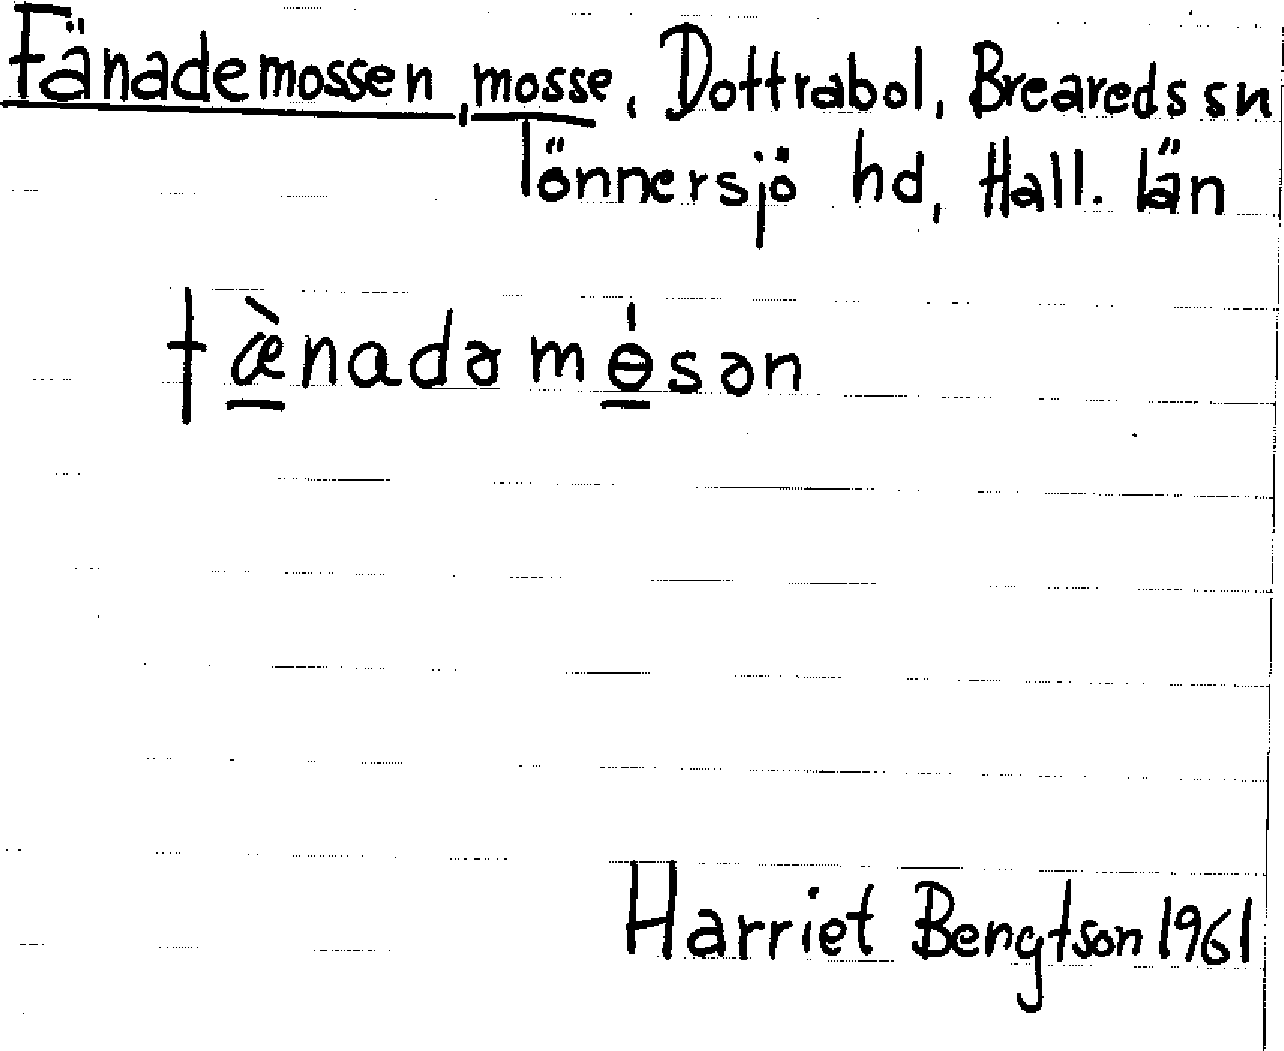 Fänademossen, mosse, Dottrabol, Breareds sn
Tönnersjö hd, Hall. län
fæ̀nadəmɵ́sən
Harriet Bengtson 1961